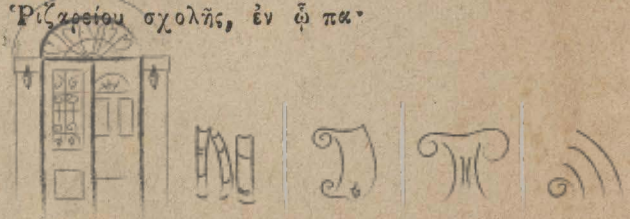 Ῥιζαρείου σχολῆς, ἐν ᾧ πα-